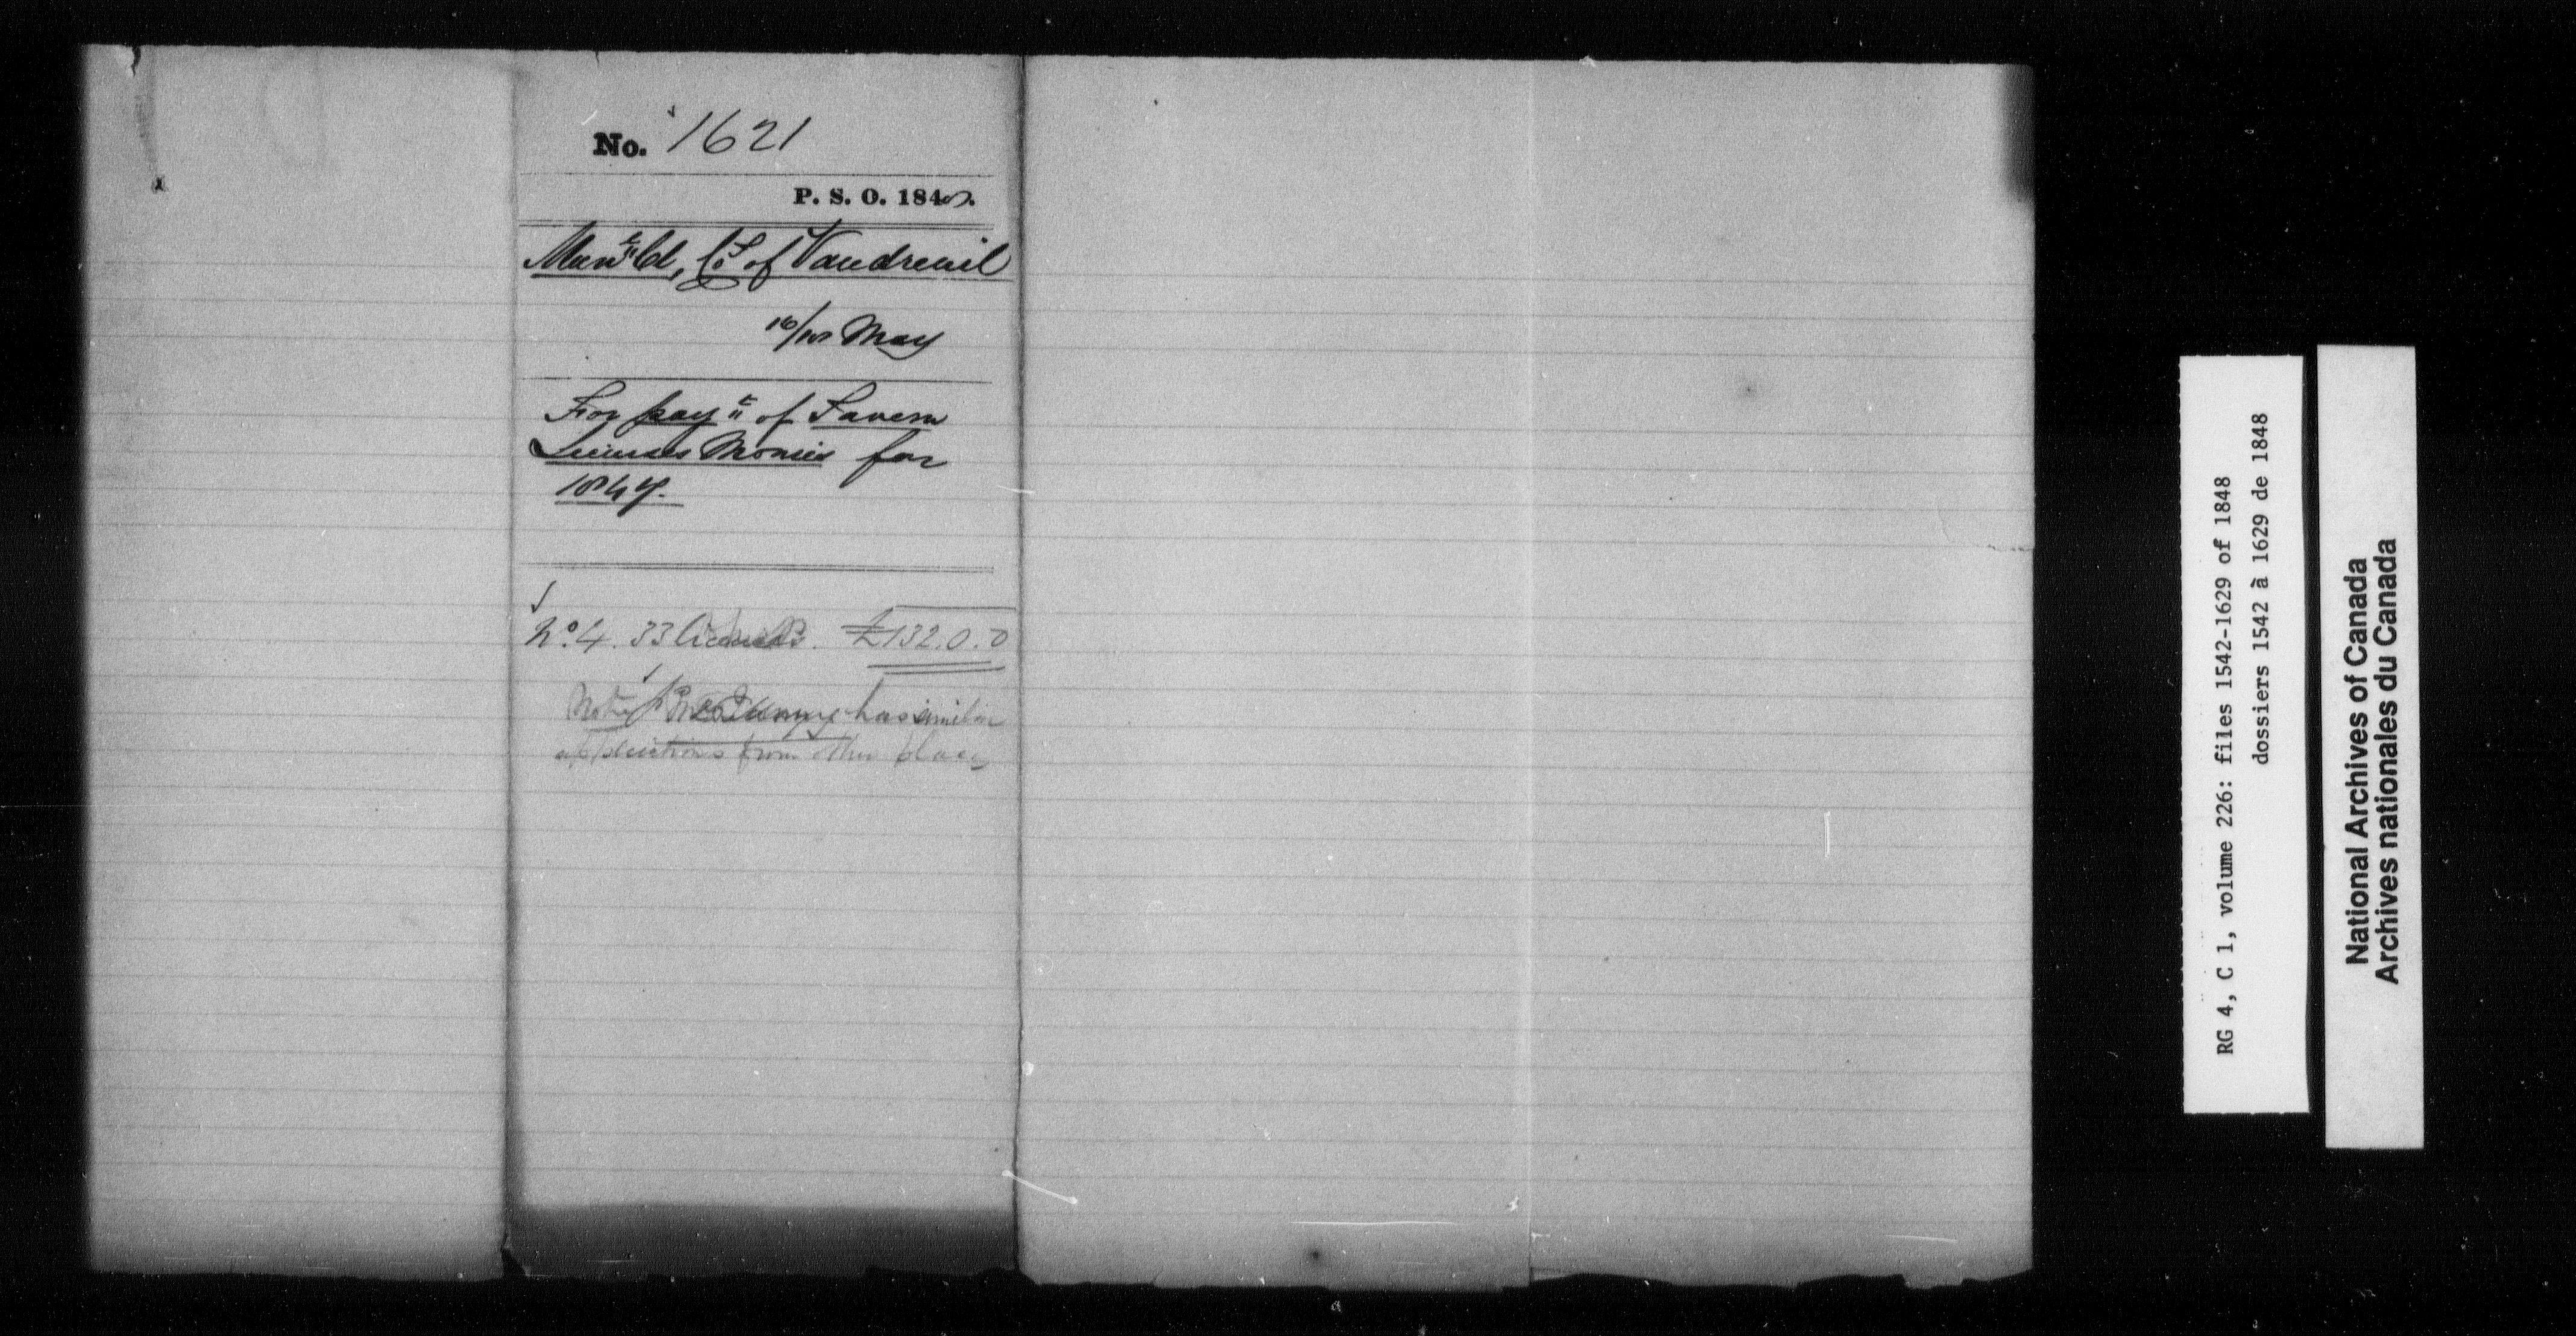 No. 1621
P. S. O. 1848.
Mun^l Cl, Co^y of Vaudreuil
16/18 May
For pay^t of Tavern
Licenses Monies for
1847.
No. 4. 33 licenses. £132.0.0
has similar
applications from other places
RG 4, C 1, volume 226: files 1542-1629 of 1848
dossiers 1542 à 1629 de 1848
National Archives of Canada
Archives nationales du Canada